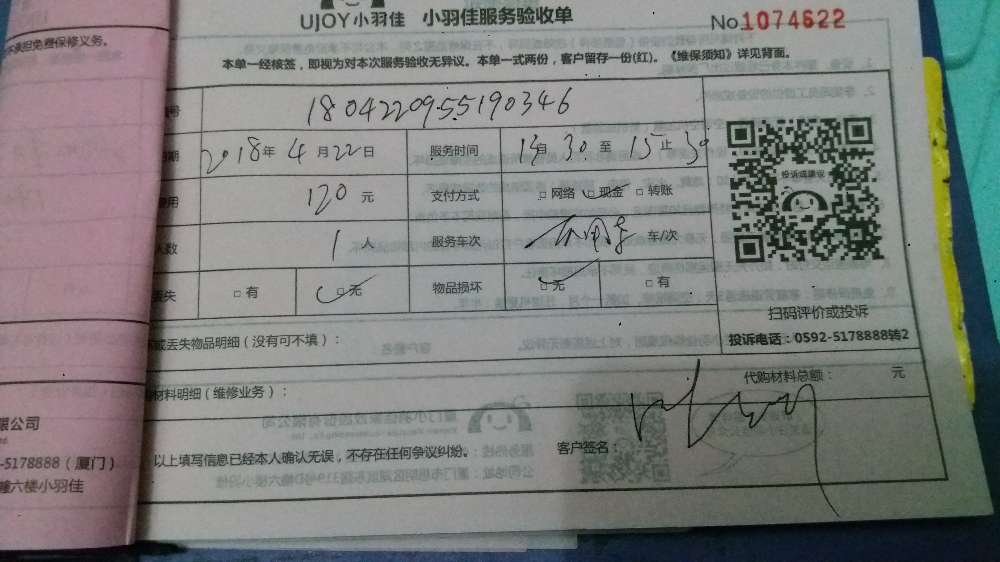 UJOY小羽佳 小羽佳服务验收单
No 1074622
承担免费保修义务。
本单一经核签，即视为对本次服务验收无异议。本单一式两份，客户留存一份(红)。《维保须知》详见背面。
号 1804220955190346
期 2018年4月22日 服务时间 自30至15止30
用 120元 支付方式 □网络 □现金 □转账
投诉或建议
人数 1人 服务车次 车/次
丢失 □有 □无 物品损坏 □无 □有
扫码评价或投诉
投诉电话：0592-5178888转2
或丢失物品明细（没有可不填）：
材料明细（维修业务）： 代购材料总额： 元
限公司
-5178888（厦门）
幢六楼小羽佳
以上填写信息已经本人确认无误，不存在任何争议纠纷。 客户签名：